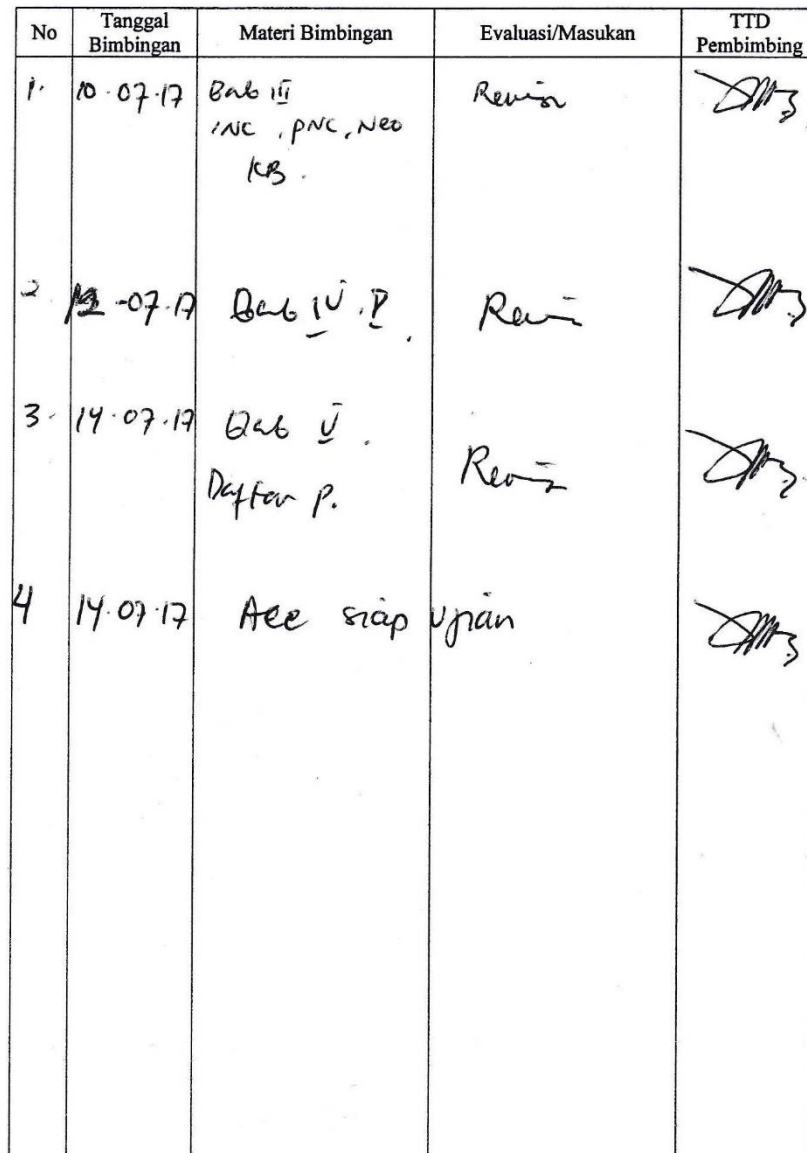 No Tanggal Bimbingan Materi Bimbingan Evaluasi/Masukan TTD Pembimbing
1. 10.07.17 Bab III Revisi
INC, PNC, Neo
KB.
2. 12-07.17 Bab IV. V. Revisi
3. 14.07.17 Bab V. Revisi
Daftar P.
4 14.07.17 Acc siap ujian